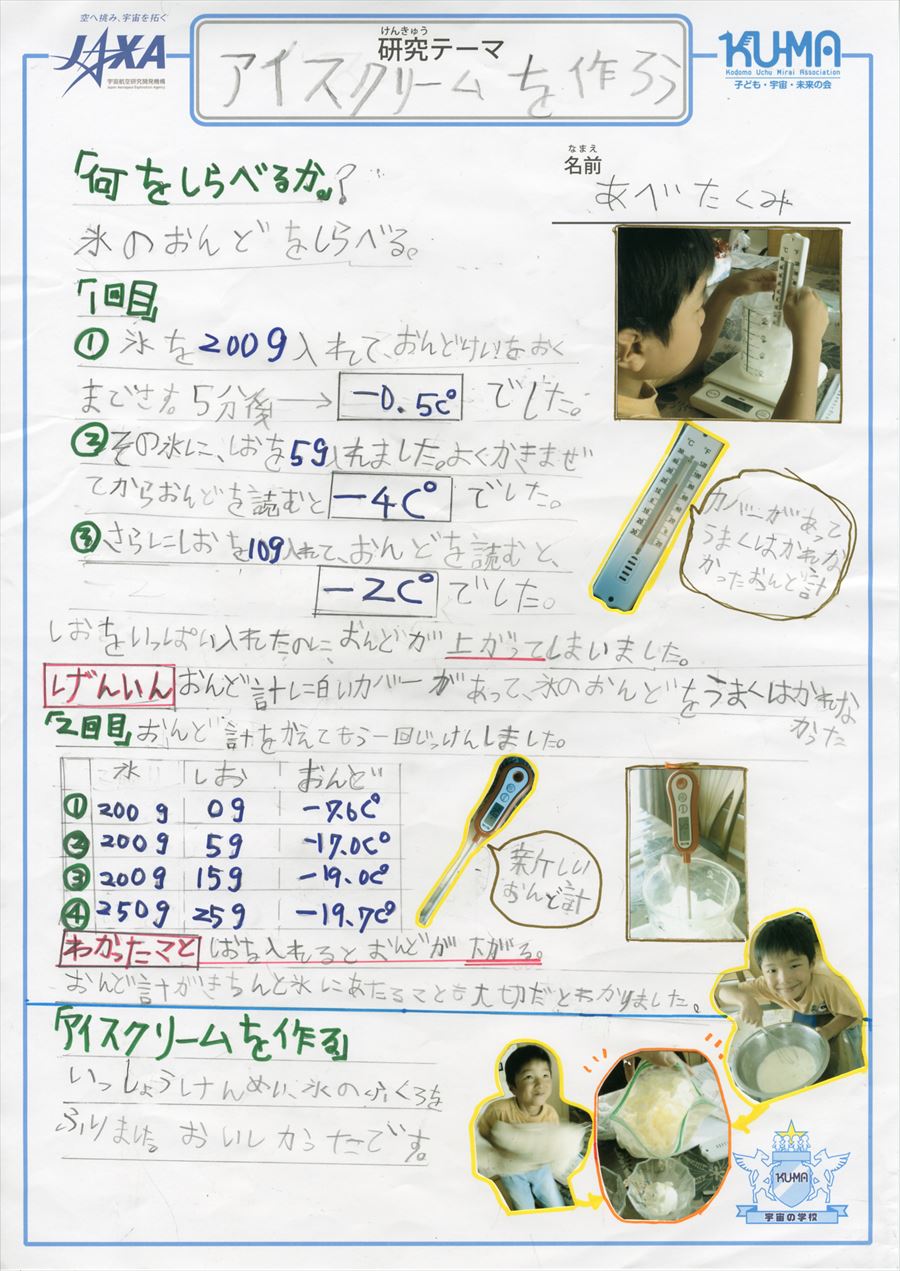 空へ挑み、宇宙を拓く
JAXA
宇宙航空研究開発機構
Japan Aerospace Exploration Agency
けんきゅう
研究テーマ
アイスクリームを作ろう
KU-MA
Kodomo Uchu Mirai Association
子ども・宇宙・未来の会
「何をしらべるか。」?
なまえ
名前
あべたくみ
氷のおんどをしらべる。
「1回目」
① 氷を200g入れて、おんどけいをおく
までさす。5分後→ -0.5C° でした。
②その氷に、しおを5g入れました。よくかきまぜ
てからおんどを読むと -4C° でした。
③さらにしおを10g入れて、おんどを読むと、
-2C° でした。
カバーがあって
うまくはかれな
かったおんど計
しおをいっぱい入れたのにおんどが上がってしまいました。
げんいん おんど計に白いカバーがあって、氷のおんどをうまくはかれな
かった
「2回目」おんど計をかえてもう一回じっけんしました。
氷 しお おんど
① 200g 0g -7.6C°
② 200g 5g -17.0C°
③ 200g 15g -19.0C°
④ 250g 25g -19.7C°
新しい
おんど計
わかったこと しおを入れるとおんどが下がる。
おんど計がきちんと氷にあたることも大切だとわかりました。
「アイスクリームを作る」
いっしょうけんめい、氷のふくろを
ふりました。おいしかったです。
KUMA
宇宙の学校